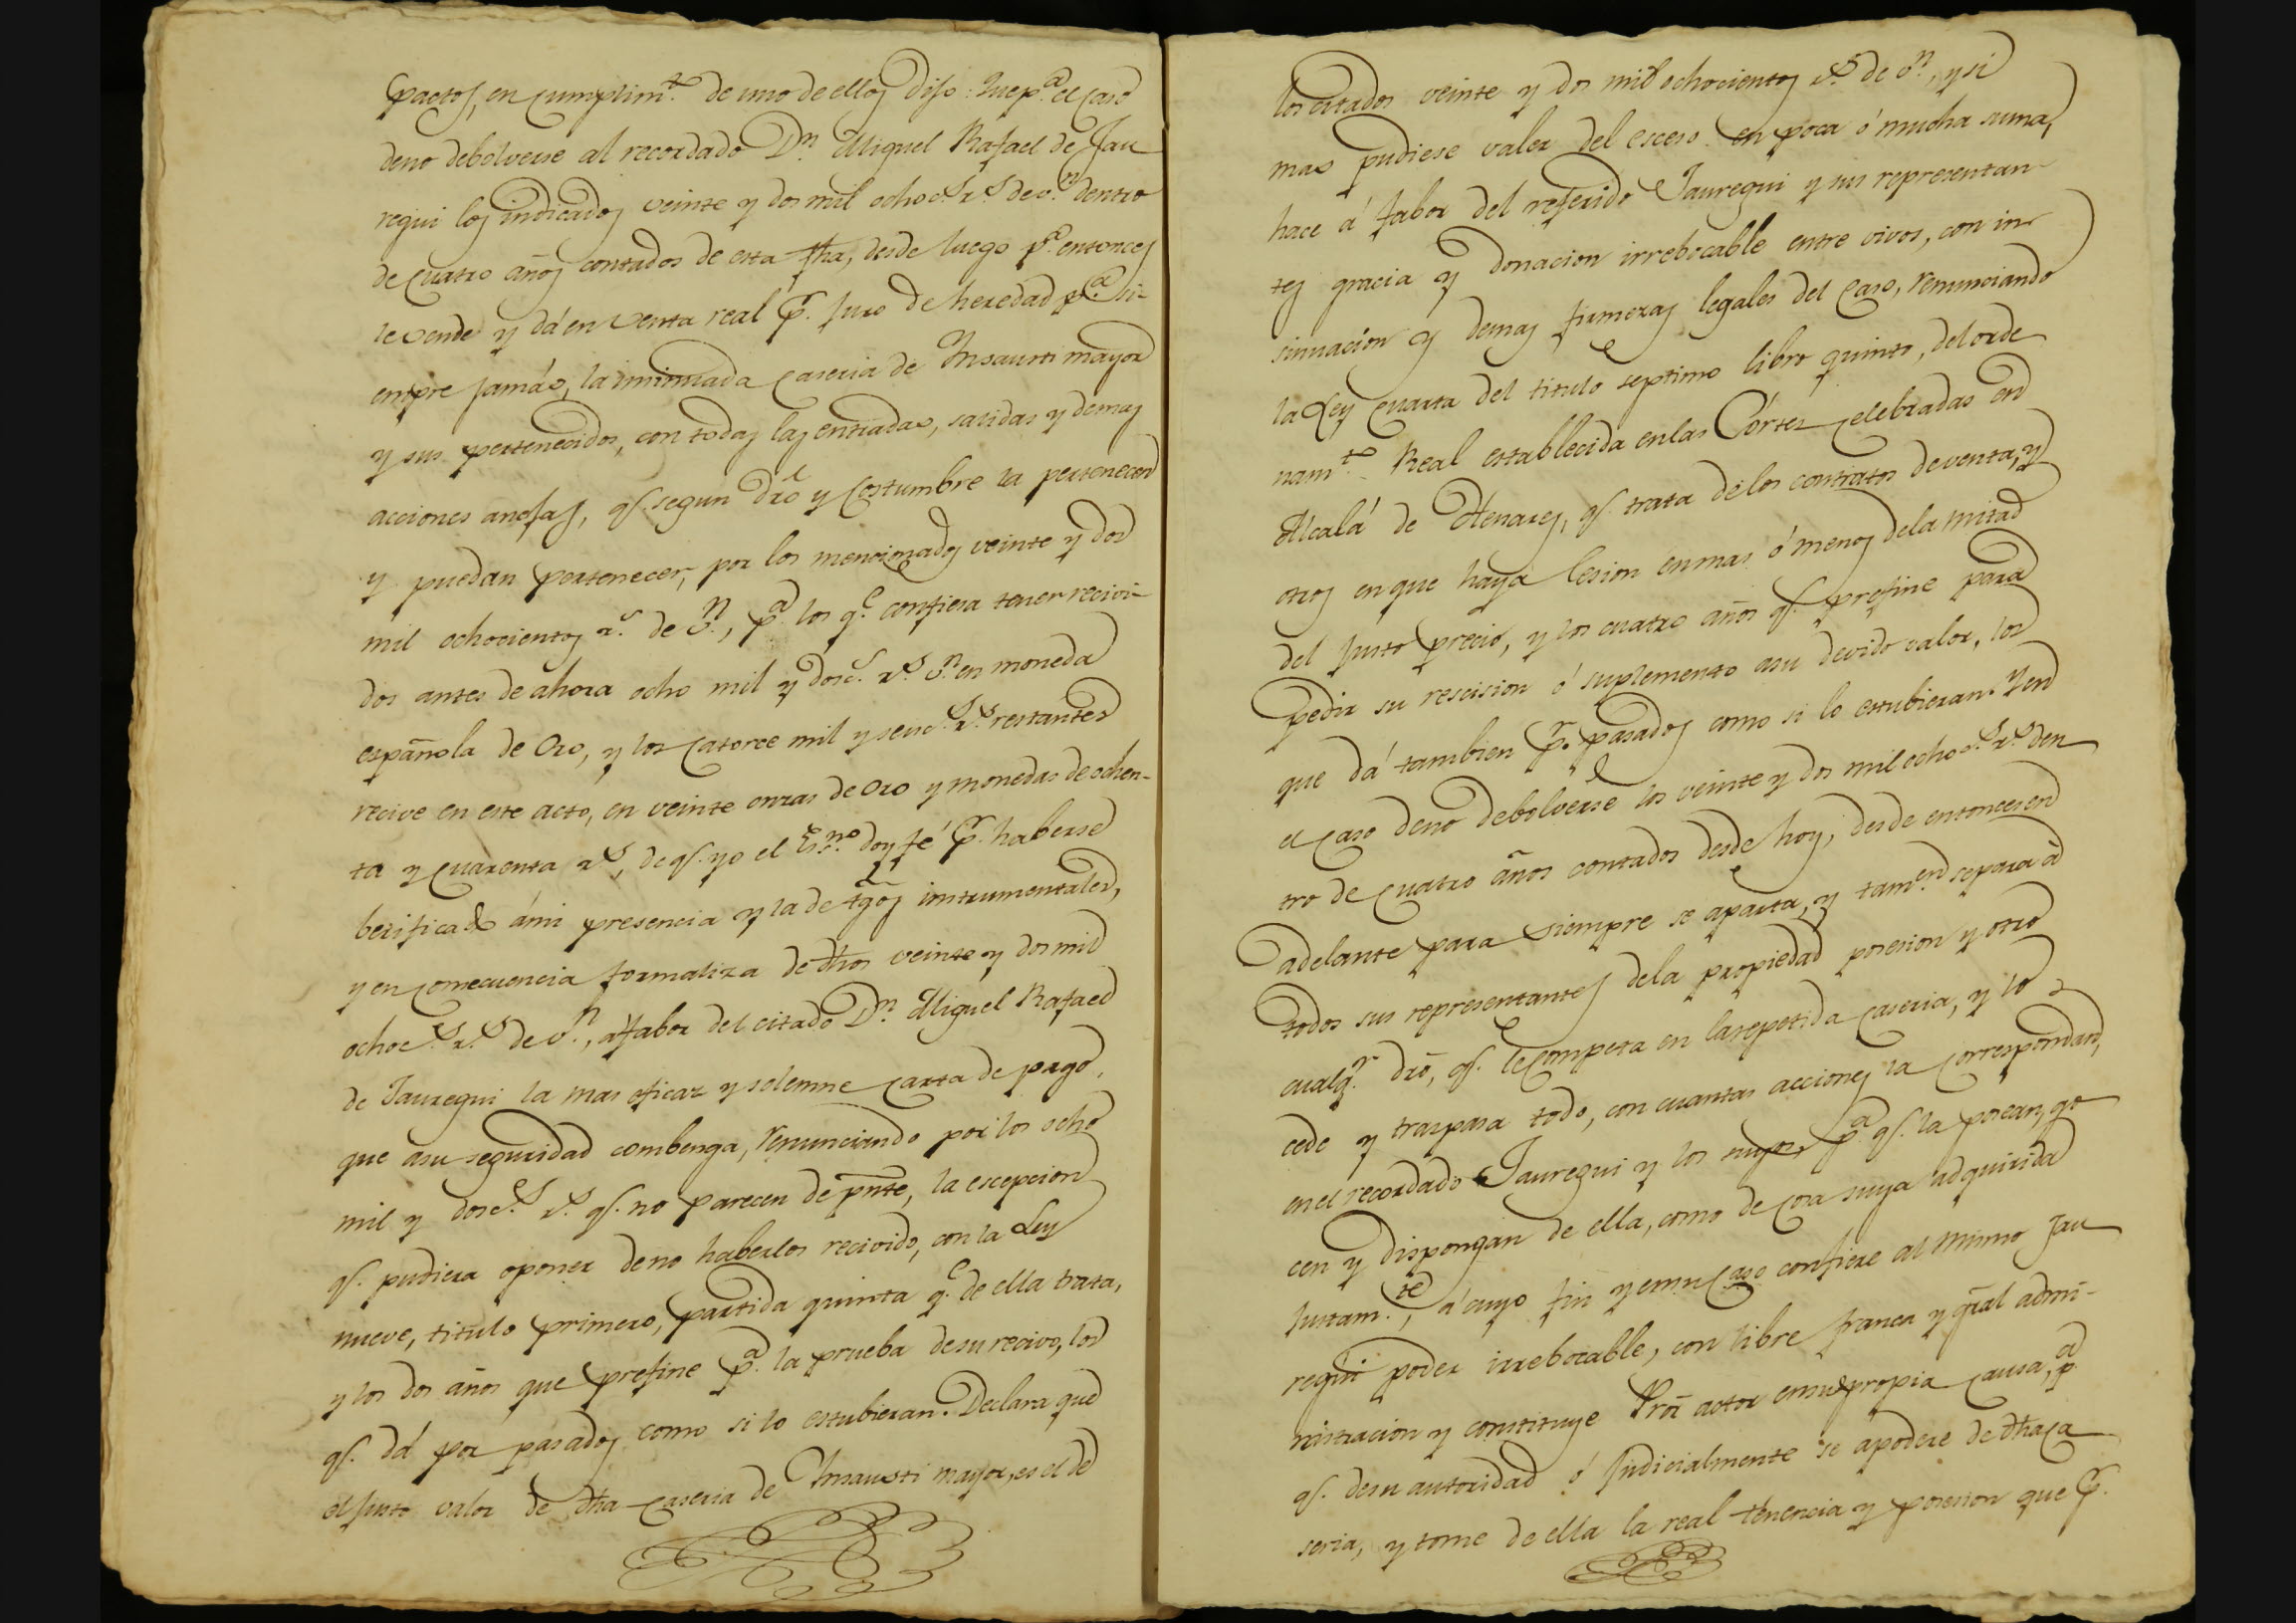 pactos, en cumplim.to de uno de ellos Dijo: Que p.a el caso
deno debolverse al recordado D.n Miguel Rafael de Jau
regui los indicados veinte y dos mil ochoc.s r.s de v.n dentro
de cuatro años contados de esta fha, desde luego p.a entonces
le vende y dá en venta real p.r juro de heredad p.a si-
empre jamás, la inimiada caseria de Insausti mayor
y sus pertenecidos, con todas las entradas, salidas y demas
acciones anejas, q.e segun dro y costumbre la pertenecen
y puedan pertenecer, por los mencionados veinte y dos
mil ochocientos r.s de v.n, p.a los q.e confiesa tener recivi-
dos antes de ahora ocho mil y dosc.s r.s v.n en moneda
española de Oro, y los catorce mil y seisc.s r.s restantes
recive en este acto, en veinte onzas de Oro y monedas de ochen-
ta y cuarenta r.s, de q.e yo el Es.no doy fé p.r haberse
berificado ámi presencia y la de tgos instrumentales,
y en consecuencia formaliza de dhos veinte y dos mil
ochoc.s r.s de v.n, áfabor del citado D.n Miguel Rafael
de Jauregui la mas eficaz y solemne carta de pago,
que asu seguridad combenga, renunciando por los ocho
mil y dosc.s r.s q.e no parecen de pnte, la escepcion
q.e pudiera oponer deno haberlos recivido, con la Ley
nueve, titulo primero, partida quinta q.e de ella trata,
y los dos años que prefine p.a la prueba desu recivo, los
q.e dá por pasados como si lo estubieran. Declara que
el justo valor de dha caseria de Insausti mayor, es el de
los citados veinte y dos mil ochocientos r.s de v.n, y si
mas pudiese valer del esceso en poca ó mucha suma,
hace á fabor del referido Jauregui y sus representan
tes gracia y donacion irrebocable entre vivos, con in
sinuacion y demas firmezas legales del caso, renunciando
la Ley cuarta del titulo septimo libro quinto, del orde
nam.to Real establecida en las Córtes celebradas en
Alcalá de Henares, q.e trata de los contratos de venta, y
otros en que haya lesion en mas ó menos dela mitad
del justo precio, y los cuatro años q.e prefine para
pedir su rescision ó suplemento asu devido valor, los
que dá tambien p.r pasados como si lo estubieran. Y en
el caso deno debolverse los veinte y dos mil ochoc.s r.s den
tro de cuatro años contados desde hoy, desde entonces en
adelante para siempre se aparta, y tam.en separa á
todos sus representantes dela propiedad posesion y otro
cualq.r dro, q.e le competa en la repetida caseria, y lo
cede y traspasa todo, con cuantas acciones la correspondan,
en el recordado Jauregui y los suyos, p.a q.e la posean, go
cen y dispongan de ella, como de cosa suya adquirida
justam.te, á cuyo fin y en su caso confiere al mismo Jau
regui poder irrebocable, con libre franca y gral admi-
nistracion y constituye Pror actor en su propia causa, p.a
q.e desu autoridad ó judicialmente se apodere de dha ca
seria, y tome de ella la real tenencia y posesion que p.r